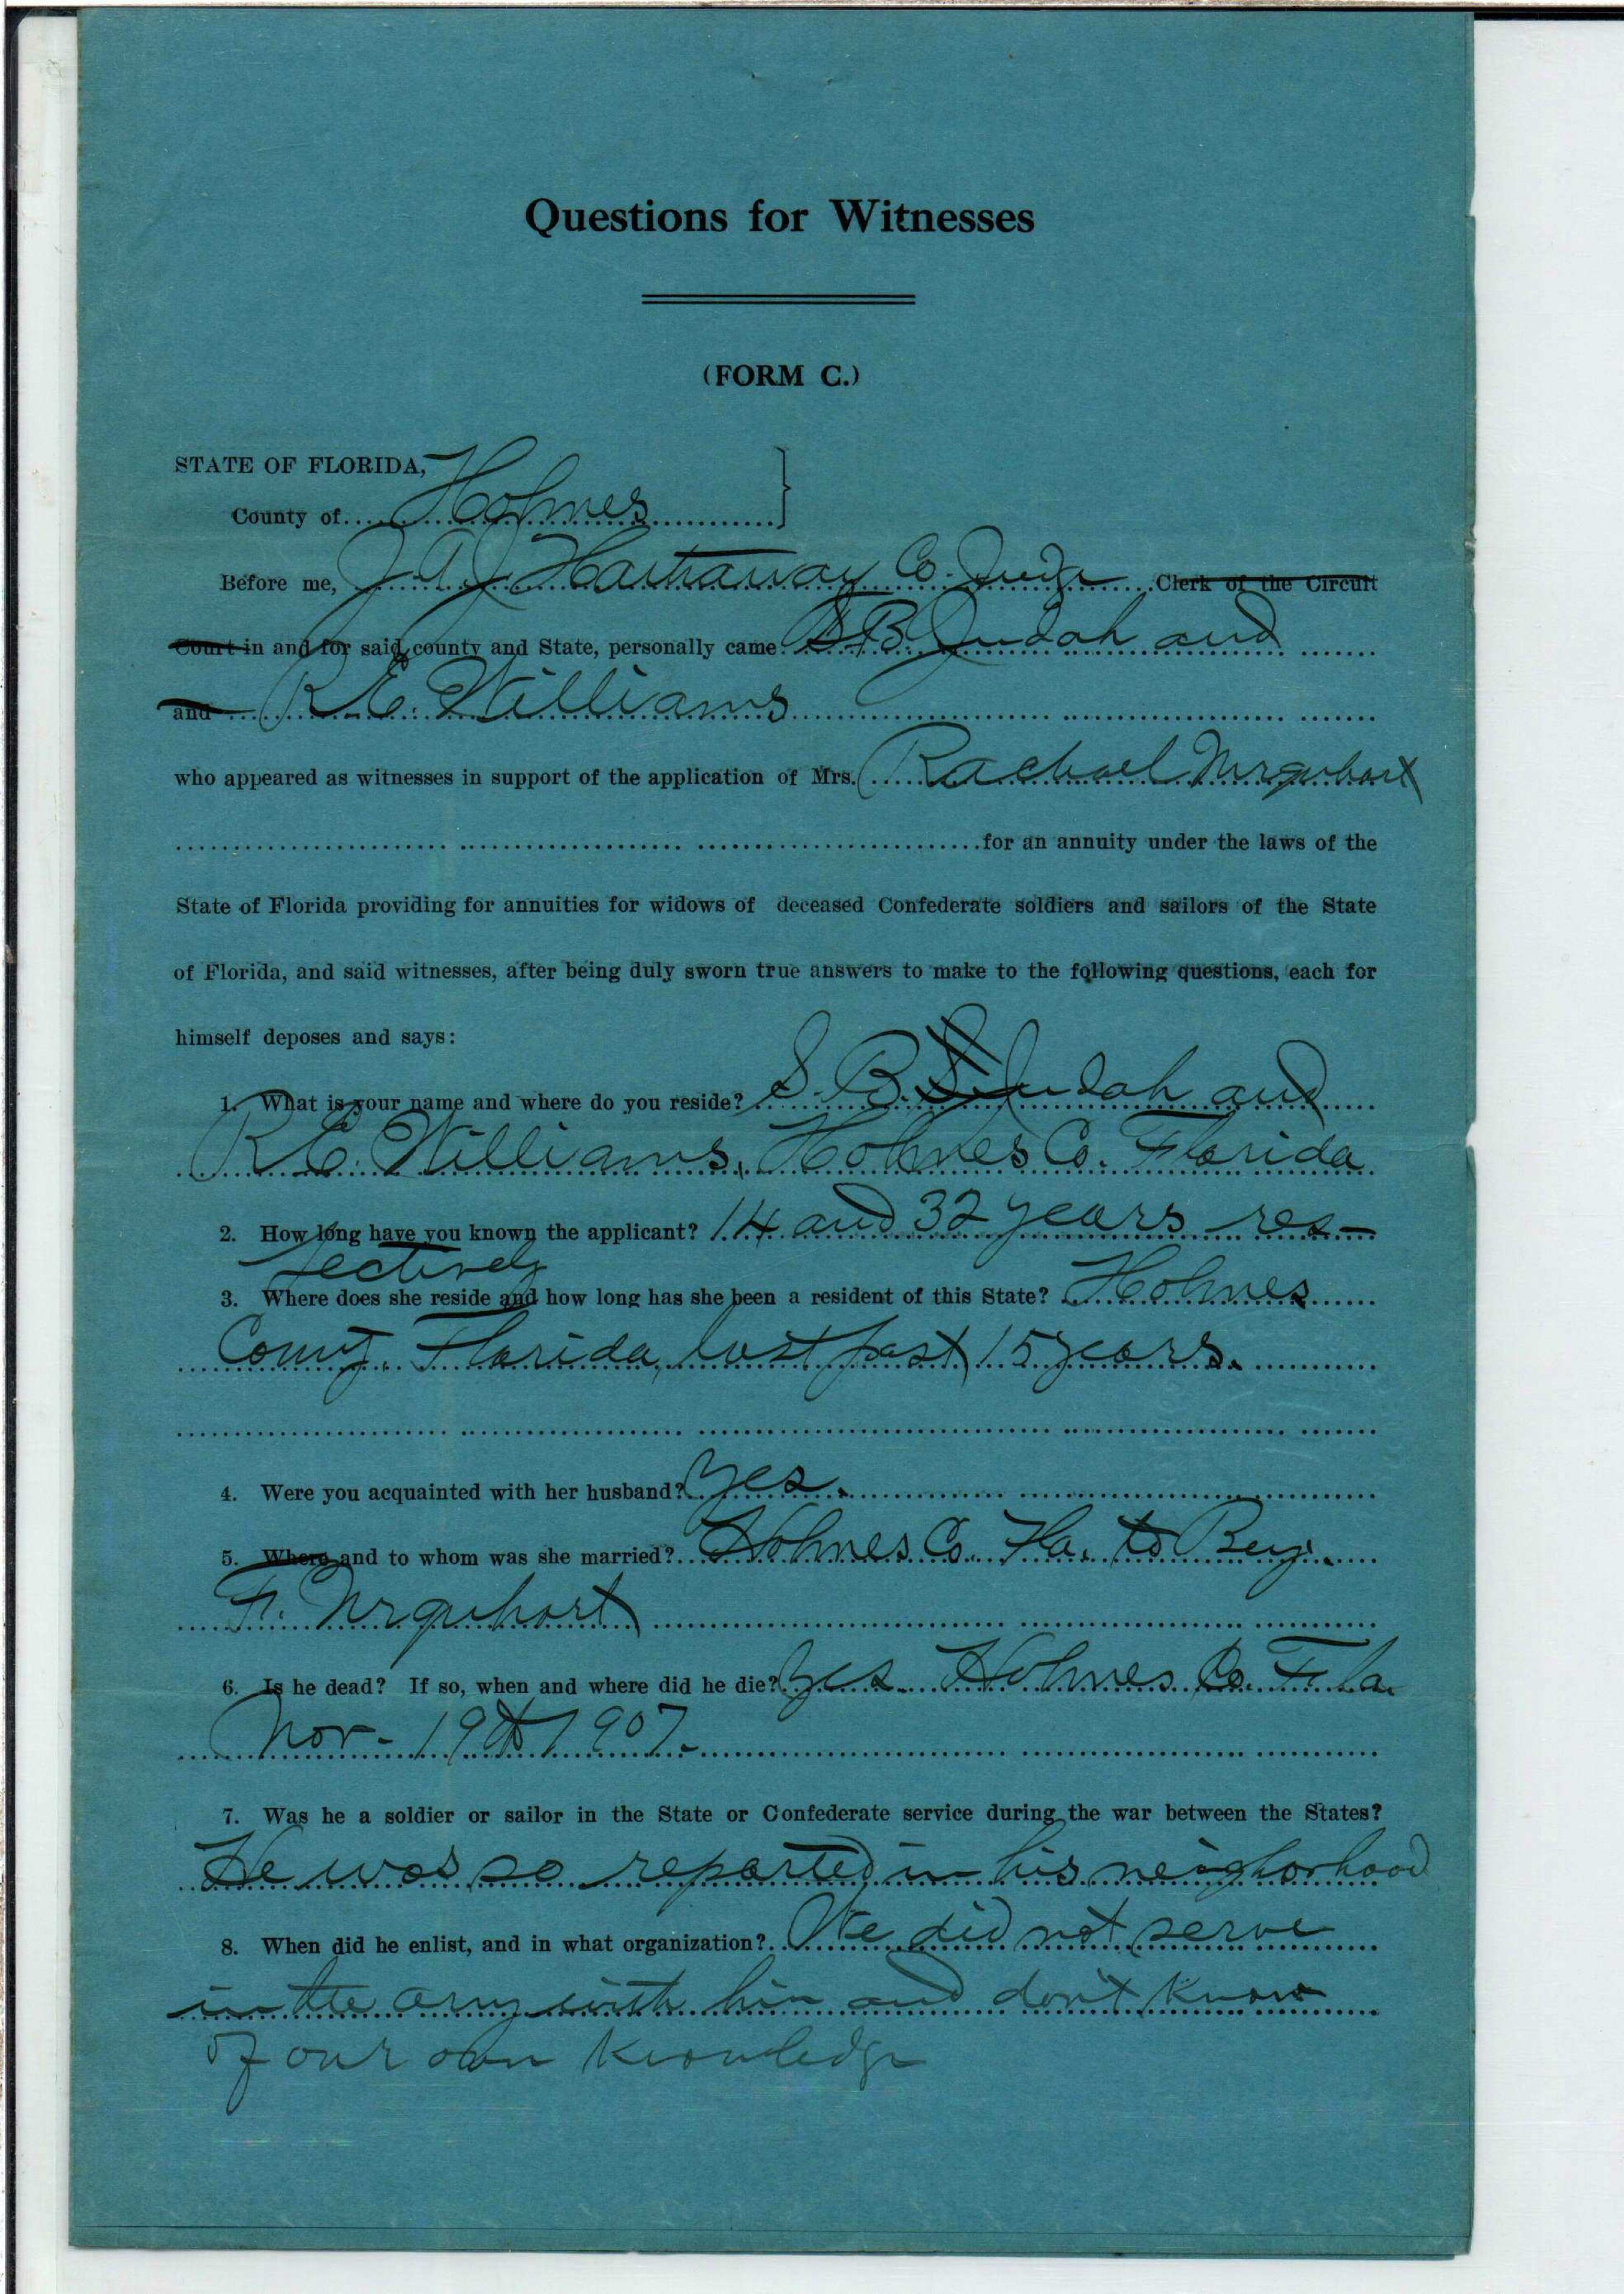 Questions for Witnesses
(FORM C.)
STATE OF FLORIDA,
County of Holmes
Before me, J. A. J. Hathaway Co. Judge Clerk of the Circuit
Court in and for said county and State, personally came S. B. Judah and
and R. E. Williams
who appeared as witnesses in support of the application of Mrs. Rachael Urquhart
for an annuity under the laws of the
State of Florida providing for annuities for widows of deceased Confederate soldiers and sailors of the State
of Florida, and said witnesses, after being duly sworn true answers to make to the following questions, each for
himself deposes and says:
1. What is your name and where do you reside? S. B. Judah and
R. E. Williams, Holmes Co. Florida
2. How long have you known the applicant? 14 and 32 years res-
pectively
3. Where does she reside and how long has she been a resident of this State? Holmes
County, Florida, last past 15 years.
4. Were you acquainted with her husband? Yes.
5. Where and to whom was she married? Holmes Co. Fla. to Benj.
F. Urquhart
6. Is he dead? If so, when and where did he die? Yes. Holmes Co. Fla.
Nov - 19th 1907.
7. Was he a soldier or sailor in the State or Confederate service during the war between the States?
He was so reported in his neighorhood
8. When did he enlist, and in what organization? We did not serve
in the army with him and don't know
of our own knowledge